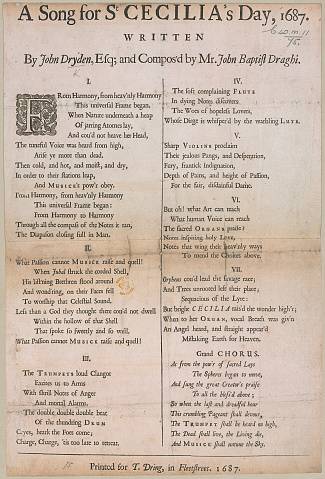 A Song for St CECILIA's Day, 1687.
WRITTEN
By John Dryden, Esq; and Compos'd by Mr. John Baptist Draghi.
I.
FRom Harmony, from heav'nly Harmony
This universal Frame began.
When Nature underneath a heap
Of jarring Atomes lay,
And cou'd not heave her Head,
The tuneful Voice was heard from high,
Arise ye more than dead.
Then cold, and hot, and moist, and dry,
In order to their stations leap,
And MUSICK's pow'r obey.
From Harmony, from heav'nly Harmony
This universal Frame began:
From Harmony to Harmony
Through all the compass of the Notes it ran,
The Diapason closing full in Man.
II.
What Passion cannot MUSICK raise and quell!
When Jubal struck the corded Shell,
His listning Brethren stood around
And wondring, on their Faces fell
To worship that Celestial Sound.
Less than a God they thought there could not dwell
Within the hollow of that Shell
That spoke so sweetly and so well.
What Passion cannot MUSICK raise and quell!
III.
The TRUMPETS loud Clangor
Excites us to Arms
With shrill Notes of Anger
And mortal Alarms.
The double double double beat
Of the thundring DRUM
Cryes, heark the Foes come;
Charge, Charge, 'tis too late to retreat.
IV.
The soft complaining FLUTE
In dying Notes discovers
The Woes of hopeless Lovers,
Whose Dirge is whisper'd by the warbling LUTE.
V.
Sharp VIOLINS proclaim
Their jealous Pangs, and Desperation,
Fury, frantick Indignation,
Depth of Pains, and height of Passion,
For the fair, disdainful Dame.
VI.
But oh! what Art can teach
What human Voice can reach
The sacred ORGANS praise?
Notes inspiring holy Love,
Notes that wing their heav'nly ways
To mend the Choires above.
VII.
Orpheus cou'd lead the savage race;
And Trees unrooted left their place;
Sequacious of the Lyre:
But bright CECILIA rais'd the wonder high'r;
When to her ORGAN, vocal Breath was giv'n
An Angel heard, and straight appear'd
Mistaking Earth for Heaven.
Grand CHORUS.
As from the pow'r of sacred Lays
The Spheres began to move,
And sung the great Creator's praise
To all the bless'd above;
So when the last and dreadful hour
This crumbling Pageant shall devour,
The TRUMPET shall be heard on high,
The Dead shall live, the Living die,
And MUSICK shall untune the Sky.
Printed for T. Dring, in Fleetstreet. 1687.